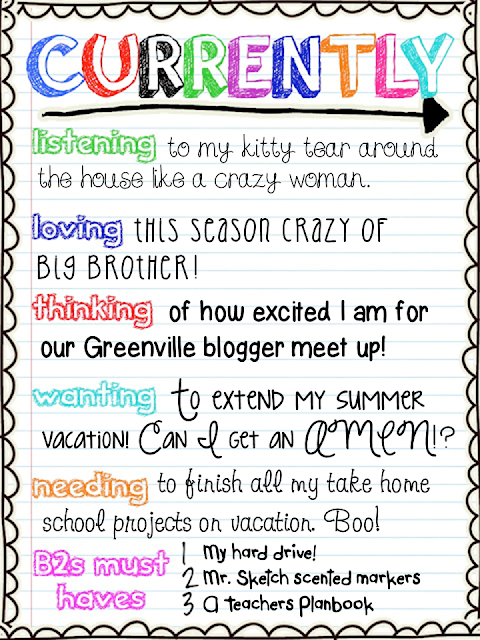 CURRENTLY
listening to my kitty tear around
the house like a crazy woman.
loving THIS SEASON CRAZY OF
BIG BROTHER!
thinking of how excited I am for
our Greenville blogger meet up!
wanting to EXTEND MY SUMMER
VACATION! CAN I GET AN AMEN!?
needing to finish all my take home
school projects on vacation. Boo!
B2s must haves
1 My hard drive!
2 Mr. Sketch scented markers
3 a Teachers Planbook